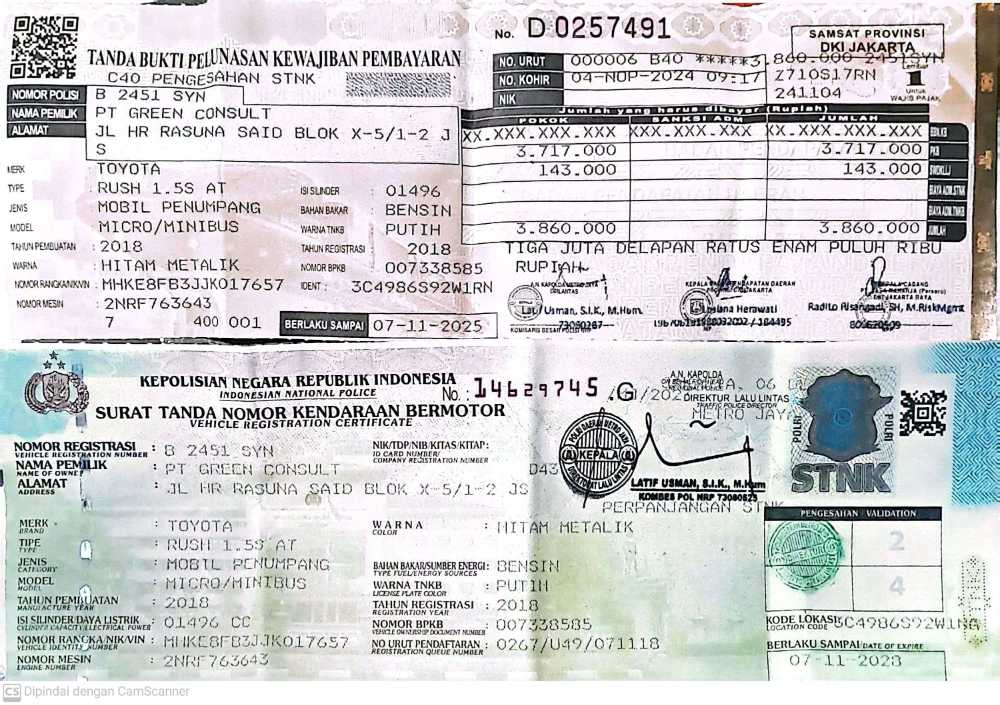 No. D 0257491
SAMSAT PROVINSI
DKI JAKARTA
TANDA BUKTI PELUNASAN KEWAJIBAN PEMBAYARAN
C40 PENGESAHAN STNK
NO. URUT 000006 B40 *****3.860.000 2451SYN
NO. KOHIR 04-NOP-2024 09:17 Z710S17RN
NIK 241104
Lembar
1
UNTUK
WAJIB PAJAK
NOMOR POLISI B 2451 SYN
NAMA PEMILIK PT GREEN CONSULT
ALAMAT JL HR RASUNA SAID BLOK X-5/1-2 JS
S
Jumlah yang harus dibayar (Rupiah)
POKOK SANKSI ADM JUMLAH
XX.XXX.XXX.XXX XX.XXX.XXX.XXX XX.XXX.XXX.XXX BBN.KB
3.717.000 3.717.000 PKB
143.000 143.000 SWDKLLJ
BIAYA ADM.STNK
BIAYA ADM.TNKB
3.860.000 3.860.000 JUMLAH
TIGA JUTA DELAPAN RATUS ENAM PULUH RIBU
RUPIAH
MERK : TOYOTA
TYPE : RUSH 1.5S AT ISI SILINDER : 01496
JENIS : MOBIL PENUMPANG BAHAN BAKAR : BENSIN
MODEL : MICRO/MINIBUS WARNA TNKB : PUTIH
TAHUN PEMBUATAN : 2018 TAHUN REGISTRASI : 2018
WARNA : HITAM METALIK NOMOR BPKB : 007338585
NOMOR RANGKA/NIK/VIN : MHKE8FB3JJK017657 IDENT : 3C4986S92W1RN
NOMOR MESIN : 2NRF763643
7 400 001 BERLAKU SAMPAI 07-11-2025
Latif Usman, S.I.K., M.Hum.
Herawati
KEPALA CADANG
Radito Risangadi, SH, M.RiskMgmt
KEPOLISIAN NEGARA REPUBLIK INDONESIA
INDONESIAN NATIONAL POLICE
No.: 14629745 .G
SURAT TANDA NOMOR KENDARAAN BERMOTOR
VEHICLE REGISTRATION CERTIFICATE
A.N. KAPOLDA
DIREKTUR LALU LINTAS
TRAFFIC POLICE DIRECTOR
METRO JAYA
KEPALA
LATIF USMAN, S.I.K., M.Hum
KOMBES POL NRP 73080525
PERPANJANGAN STNK
POLRI
POLRI
STNK
NOMOR REGISTRASI : B 2451 SYN
VEHICLE REGISTRATION NUMBER
NAMA PEMILIK : PT GREEN CONSULT
NAME OF OWNER
ALAMAT : JL HR RASUNA SAID BLOK X-5/1-2 JS
ADDRESS
NIK/TDP/NIB/KITAS/KITAP:
ID CARD NUMBER/
COMPANY REGISTRATION NUMBER
MERK : TOYOTA
BRAND
TIPE : RUSH 1.5S AT
TYPE
JENIS : MOBIL PENUMPANG
CATEGORY
MODEL : MICRO/MINIBUS
MODEL
TAHUN PEMBUATAN : 2018
MANUFACTURE YEAR
ISI SILINDER/DAYA LISTRIK : 01496 CC
CYLINDER CAPACITY/ELECTRICAL POWER
NOMOR RANGKA/NIK/VIN : MHKE8FB3JJK017657
VEHICLE IDENTITY NUMBER
NOMOR MESIN : 2NRF763643
ENGINE NUMBER
WARNA : HITAM METALIK
COLOR
BAHAN BAKAR/SUMBER ENERGI: BENSIN
TYPE FUEL/ENERGY SOURCES
WARNA TNKB : PUTIH
LICENSE PLATE COLOR
TAHUN REGISTRASI : 2018
REGISTRATION YEAR
NOMOR BPKB : 007338585
VEHICLE OWNERSHIP DOCUMENT NUMBER
NO URUT PENDAFTARAN : 0267/U49/071118
REGISTRATION QUEUE NUMBER
PENGESAHAN / VALIDATION
2
4
KODE LOKASI 3C4986S92W1NA
LOCATION CODE
BERLAKU SAMPAI/DATE OF EXPIRE
07-11-2028
CS Dipindai dengan CamScanner